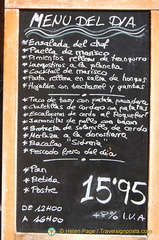 MENU DEL DIA
* Ensalada del chef
* Paella de marisco
* Pimientos rellenos de txangurro
* Langostinos a la plancha
* Cocktail de marisco
* Pasta rellena en salsa de hongos
* Hojaldre con bechamel y gambas
* Taco de buey con patata panadera
* Chuletillas de cordero con patatas
* Escalopines de cerdo al Roquefort
* Jamoncito de pollo
* Brocheta de solomillo de cerdo
* Merluza a la donostiarra
* Bacalao "Sidreria"
* Pescado fresco del dia
* Pan
* Bebida
* Postre
15'95
+8% I.V.A
DE 12H00
A 16H00
© Helen Page / Travelsignposts.com